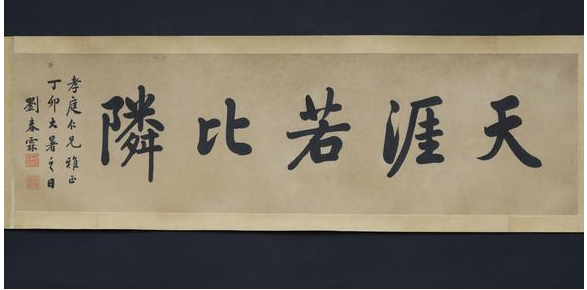 天涯若比隣
孝庭仁兄雅正
丁卯大暑之日
劉春霖